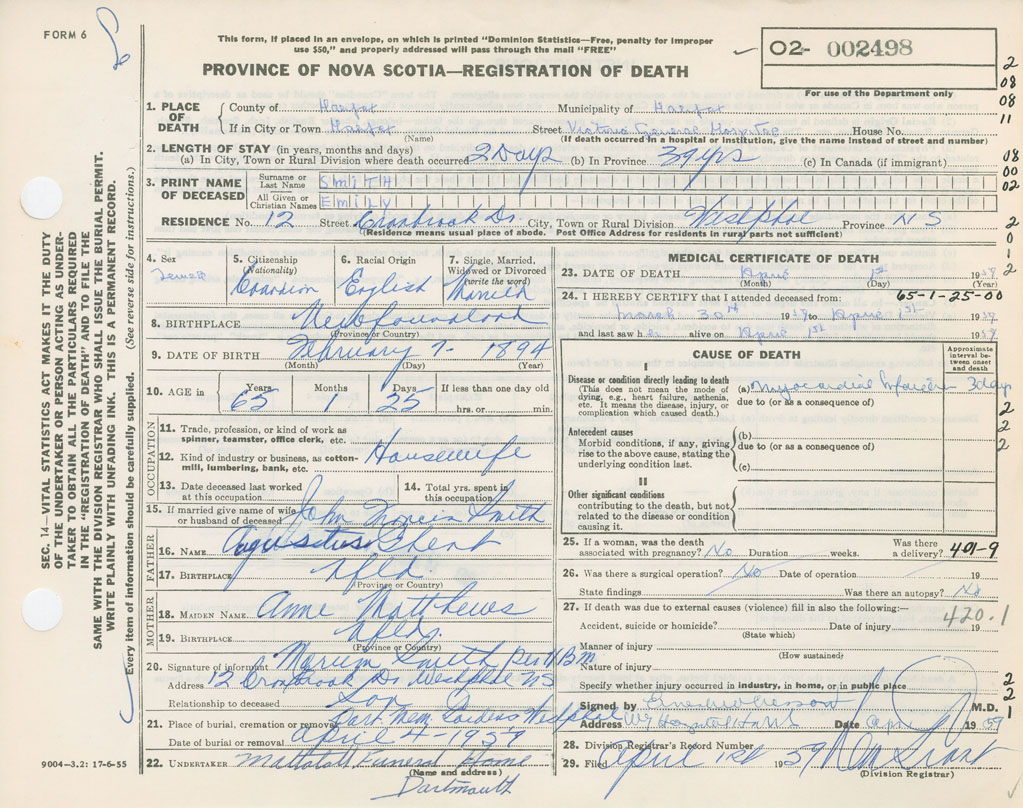 FORM 6
This form, if placed in an envelope, on which is printed "Dominion Statistics—Free, penalty for improper
use $50," and properly addressed will pass through the mail "FREE"
PROVINCE OF NOVA SCOTIA—REGISTRATION OF DEATH
02- 002498
For use of the Department only
SEC. 14—VITAL STATISTICS ACT MAKES IT THE DUTY
OF THE UNDERTAKER OR PERSON ACTING AS UNDER-
TAKER TO OBTAIN ALL THE PARTICULARS REQUIRED
IN THE "REGISTRATION OF DEATH" AND TO FILE THE
SAME WITH THE DIVISION REGISTRAR WHO SHALL ISSUE THE BURIAL PERMIT.
WRITE PLAINLY WITH UNFADING INK. THIS IS A PERMANENT RECORD.
Every item of information should be carefully supplied. (See reverse side for instructions.)
1. PLACE OF DEATH
County of Halifax Municipality of Halifax
If in City or Town Halifax Street Victoria General Hospital House No.
(Name) (If death occurred in a hospital or institution, give the name instead of street and number)
2. LENGTH OF STAY (in years, months and days)
(a) In City, Town or Rural Division where death occurred 2 Days (b) In Province 39 yrs (c) In Canada (if immigrant)
3. PRINT NAME OF DECEASED
Surname or Last Name SMITH
All Given or Christian Names EMILY
RESIDENCE No. 12 Street Cranbrook Dr. City, Town or Rural Division Westphal Province N S
(Residence means usual place of abode. Post Office Address for residents in rural parts not sufficient)
4. Sex
Female
5. Citizenship (Nationality)
Canadian
6. Racial Origin
English
7. Single, Married, Widowed or Divorced (write the word)
Married
8. BIRTHPLACE Newfoundland
(Province or Country)
9. DATE OF BIRTH February 7 - 1894
(Month) (Day) (Year)
10. AGE in Years Months Days If less than one day old
65 1 25 hrs. or min.
OCCUPATION
11. Trade, profession, or kind of work as
spinner, teamster, office clerk, etc.
12. Kind of industry or business, as cotton-
mill, lumbering, bank, etc.
Housewife
13. Date deceased last worked
at this occupation
14. Total yrs. spent in
this occupation
15. If married give name of wife
or husband of deceased John Smith
FATHER
16. NAME
17. BIRTHPLACE Nfld
(Province or Country)
MOTHER
18. MAIDEN NAME Anne Matthews
19. BIRTHPLACE Nfld.
(Province or Country)
20. Signature of informant Smith
Address 12 Cranbrook Dr. Westphal NS
Relationship to deceased Son
21. Place of burial, cremation or removal Dart. Mem. Gardens
Date of burial or removal April 4 - 1959
22. UNDERTAKER Mattatall Funeral Home
(Name and address)
Dartmouth
9004—3.2: 17-6-55
MEDICAL CERTIFICATE OF DEATH
23. DATE OF DEATH April 1st 1959
(Month) (Day) (Year)
65-1-25-00
24. I HEREBY CERTIFY that I attended deceased from:
March 30th 1959 to April 1st 1959
and last saw her alive on April 1st 1959
CAUSE OF DEATH
Approximate interval between onset and death
I
Disease or condition directly leading to death
(This does not mean the mode of
dying, e.g., heart failure, asthenia,
etc. It means the disease, injury, or
complication which caused death.)
(a) Myocardial Infarction 3 days
due to (or as a consequence of)
Antecedent causes
Morbid conditions, if any, giving
rise to the above cause, stating the
underlying condition last.
(b)
due to (or as a consequence of)
(c)
II
Other significant conditions
contributing to the death, but not
related to the disease or condition
causing it.
25. If a woman, was the death
associated with pregnancy? No Duration weeks. Was there
a delivery? 401-9
26. Was there a surgical operation? No Date of operation 19
State findings Was there an autopsy? No
27. If death was due to external causes (violence) fill in also the following:—
420.1
Accident, suicide or homicide? Date of injury 19
(State which)
Manner of injury
(How sustained)
Nature of injury
Specify whether injury occurred in industry, in home, or in public place
Signed by M.D.
Address Date April 1959
28. Division Registrar's Record Number
29. Filed April 1st 1959
(Division Registrar)
2
08
08
11
08
00
02
2
0
1
2
2
2
2
2
2
1